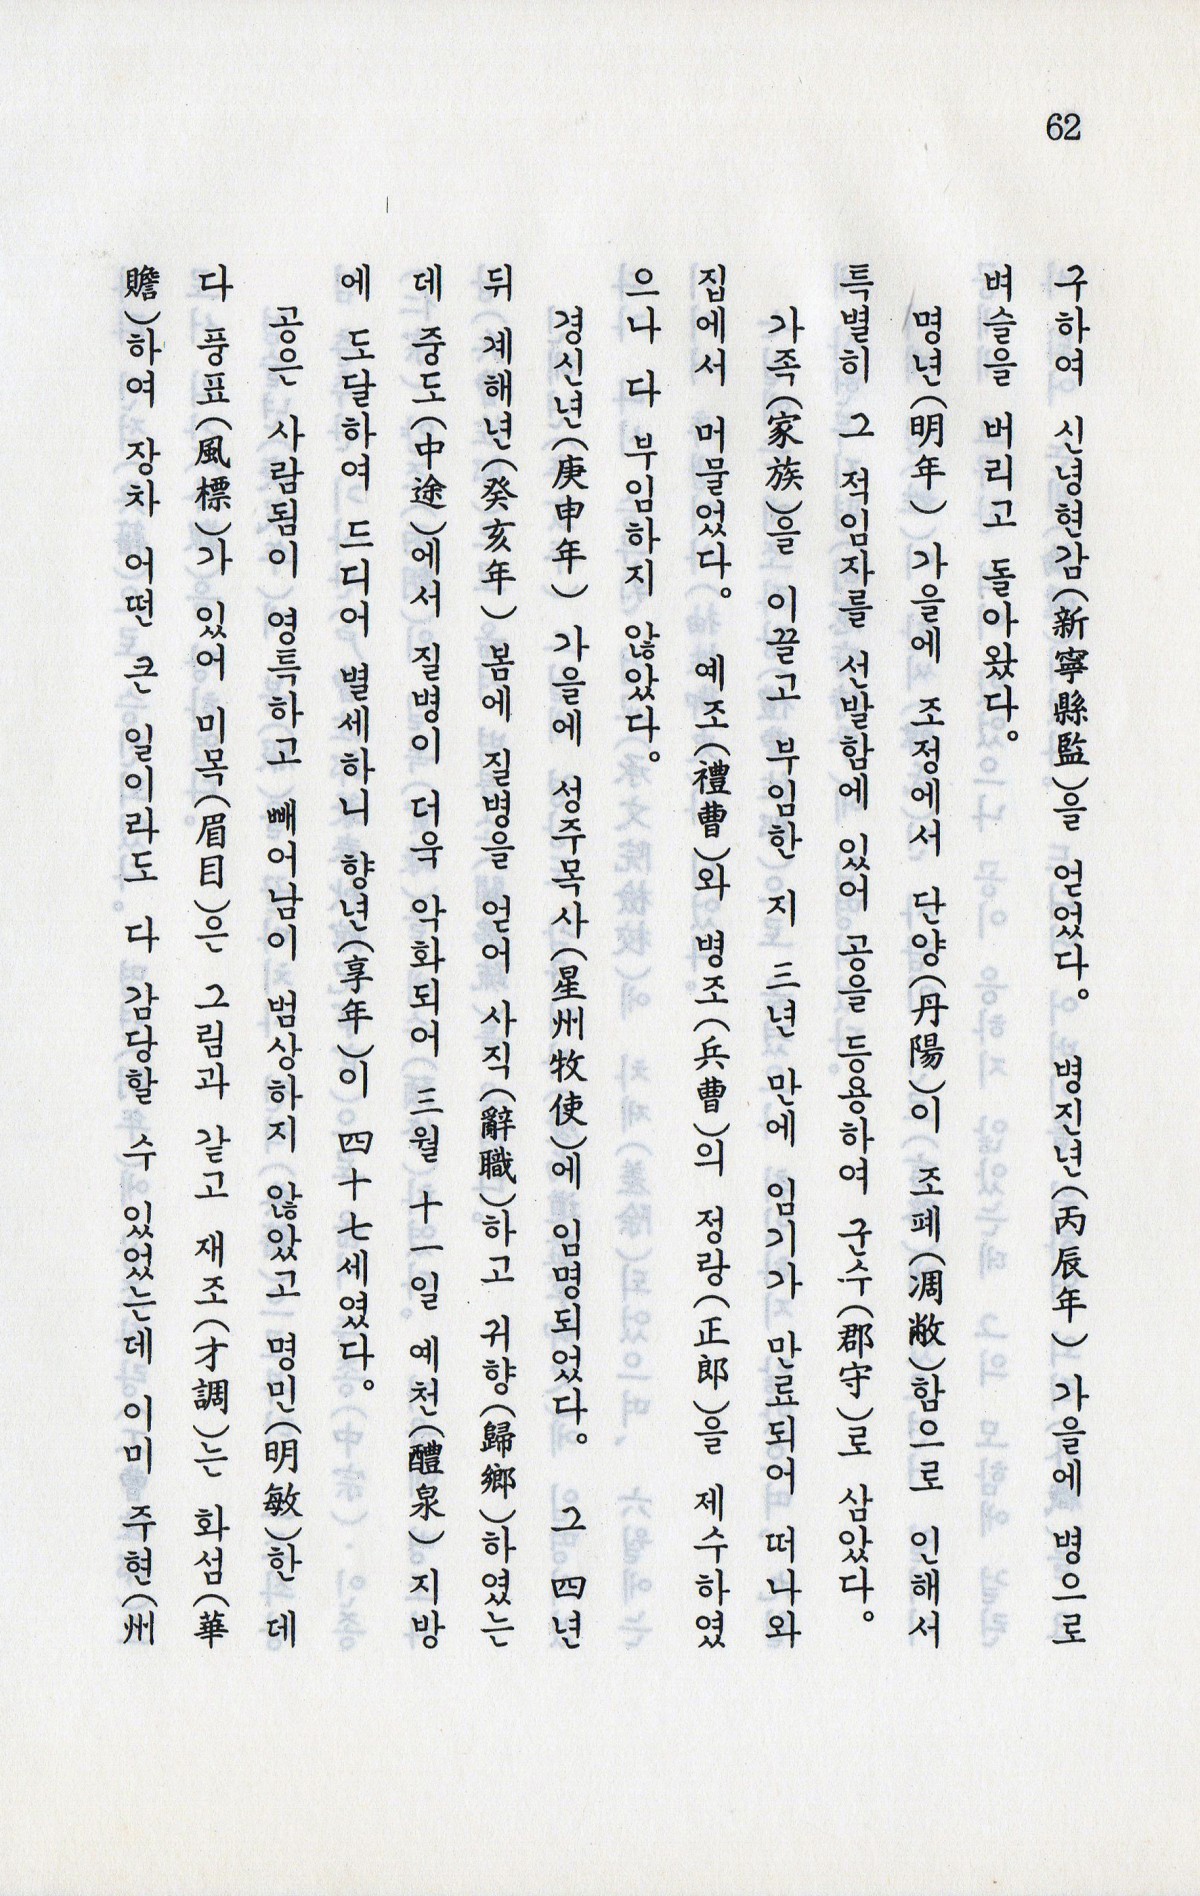 62
구하여 신녕현감(新寧縣監)을 얻었다。 병진년(丙辰年) 가을에 병으로
벼슬을 버리고 돌아왔다。
명년(明年) 가을에 조정에서 단양(丹陽)이 조폐(凋敝)함으로 인해서
특별히 그 적임자를 선발함에 있어 공을 등용하여 군수(郡守)로 삼았다。
가족(家族)을 이끌고 부임한 지 三년 만에 임기가 만료되어 떠나와
집에서 머물었다。 예조(禮曹)와 병조(兵曹)의 정랑(正郎)을 제수하였
으나 다 부임하지 않았다。
경신년(庚申年) 가을에 성주목사(星州牧使)에 임명되었다。 그 四년
뒤 계해년(癸亥年) 봄에 질병을 얻어 사직(辭職)하고 귀향(歸鄉)하였는
데 중도(中途)에서 질병이 더욱 악화되어 三월 十一일 예천(醴泉) 지방
에 도달하여 드디어 별세하니 향년(享年)이 四十七세였다。
공은 사람됨이 영특하고 빼어남이 범상하지 않았고 명민(明敏)한 데
다 풍표(風標)가 있어 미목(眉目)은 그림과 같고 재조(才調)는 화섬(華
贍)하여 장차 어떤 큰 일이라도 다 감당할 수 있었는데 이미 주현(州